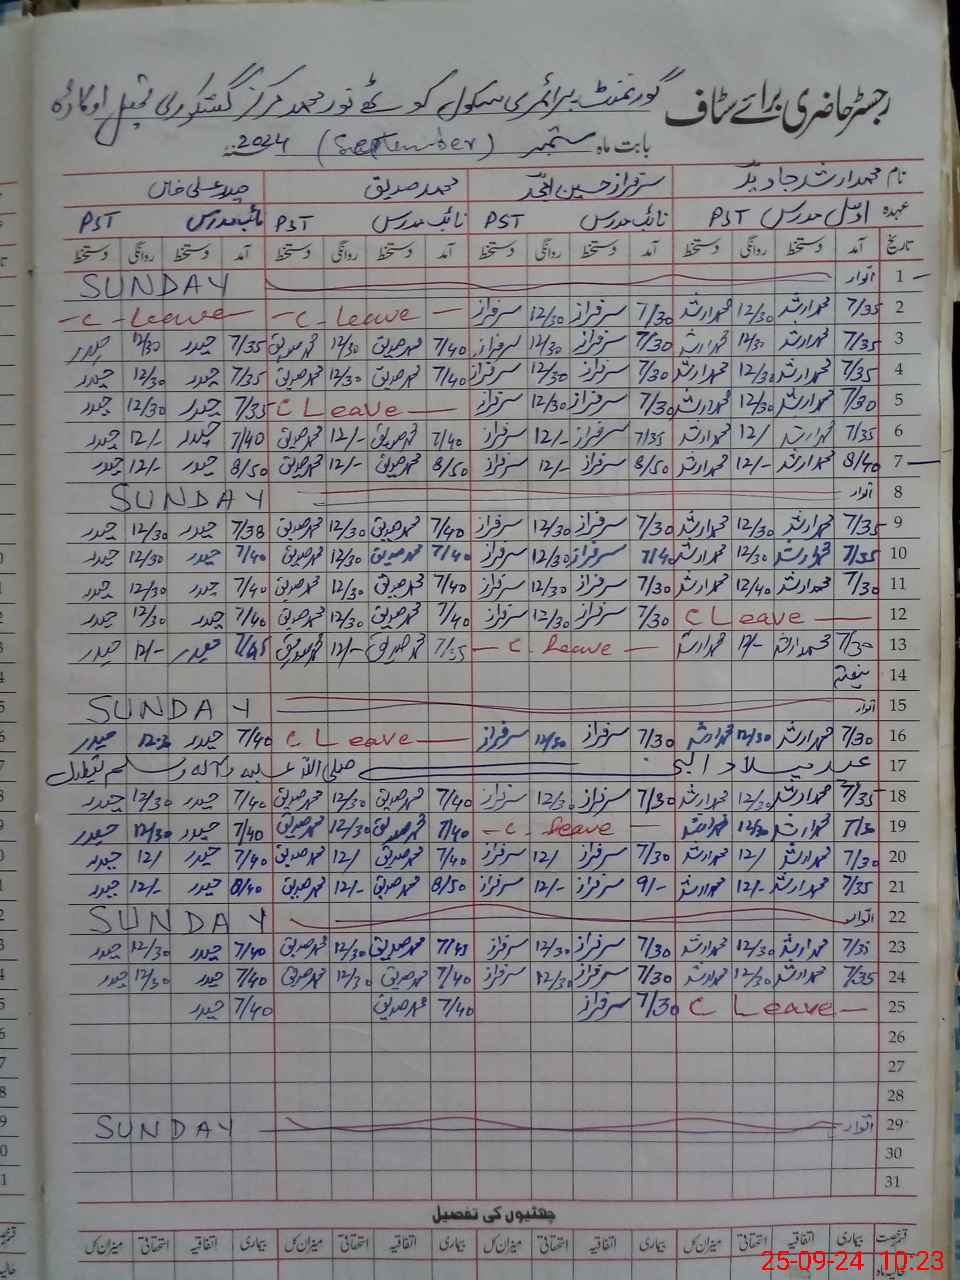 رجسٹر حاضری برائے سٹاف گورنمنٹ پرائمری سکول کوٹ نور محمد مرکز گشکوری تحصیل اوکاڑہ
بابت ماہ ستمبر (September) 2024
نام محمد ارشد جاوید سرفراز حسین امجد محمد صدیق حیدر علی خاں
عہدہ اول مدرس PST نائب مدرس PST نائب مدرس PST نائب مدرس PST
تاریخ آمد دستخط روانگی دستخط آمد دستخط روانگی دستخط آمد دستخط روانگی دستخط آمد دستخط روانگی دستخط
1 اتوار SUNDAY
2 7/35 محمد ارشد 12/30 محمد ارشد 7/30 سرفراز 12/30 سرفراز - C - Leave - - C - Leave -
3 7/35 محمد ارشد 12/30 محمد ارشد 7/30 سرفراز 12/30 سرفراز 7/40 محمد صدیق 12/30 محمد صدیق 7/35 حیدر 12/30 حیدر
4 7/35 محمد ارشد 12/30 محمد ارشد 7/30 سرفراز 12/30 سرفراز 7/40 محمد صدیق 12/30 محمد صدیق 7/35 حیدر 12/30 حیدر
5 7/30 محمد ارشد 12/30 محمد ارشد 7/30 سرفراز 12/30 سرفراز C Leave - 7/35 حیدر 12/30 حیدر
6 7/35 محمد ارشد 12/ محمد ارشد 7/35 سرفراز 12/- سرفراز 7/40 محمد صدیق 12/- محمد صدیق 7/40 حیدر 12/- حیدر
7 8/40 محمد ارشد 12/- محمد ارشد 8/50 سرفراز 12/- سرفراز 8/50 محمد صدیق 12/- محمد صدیق 8/50 حیدر 12/- حیدر
8 اتوار SUNDAY
9 7/35 محمد ارشد 12/30 محمد ارشد 7/30 سرفراز 12/30 سرفراز 7/40 محمد صدیق 12/30 محمد صدیق 7/38 حیدر 12/30 حیدر
10 7/35 محمد ارشد 12/30 محمد ارشد 7/40 سرفراز 12/30 سرفراز 7/40 محمد صدیق 12/30 محمد صدیق 7/40 حیدر 12/30 حیدر
11 7/30 محمد ارشد 12/40 محمد ارشد 7/30 سرفراز 12/30 سرفراز 7/40 محمد صدیق 12/30 محمد صدیق 7/40 حیدر 12/30 حیدر
12 C Leave - 7/30 سرفراز 12/30 سرفراز 7/40 محمد صدیق 12/30 محمد صدیق 7/40 حیدر 12/30 حیدر
13 7/30 محمد ارشد 12/- محمد ارشد - C Leave - 7/35 محمد صدیق 12/- محمد صدیق 7/45 حیدر 12/- حیدر
14 ہفتہ
15 اتوار SUNDAY
16 7/30 محمد ارشد 12/30 محمد ارشد 7/30 سرفراز 12/30 سرفراز C Leave - 7/40 حیدر 12:30 حیدر
17 عید میلاد النبی صلی اللہ علیہ وآلہ وسلم تعطیل
18 7/35 محمد ارشد 12/30 محمد ارشد 7/30 سرفراز 12/30 سرفراز 7/40 محمد صدیق 12/30 محمد صدیق 7/40 حیدر 12/30 حیدر
19 محمد ارشد 12/30 محمد ارشد - C - Leave - 7/40 محمد صدیق 12/30 محمد صدیق 7/40 حیدر 12/30 حیدر
20 7/30 محمد ارشد 12/ محمد ارشد 7/30 سرفراز 12/ سرفراز 7/40 محمد صدیق 12/ محمد صدیق 7/40 حیدر 12/ حیدر
21 7/35 محمد ارشد 12/- محمد ارشد 9/- سرفراز 12/- سرفراز 8/50 محمد صدیق 12/- محمد صدیق 8/40 حیدر 12/- حیدر
22 اتوار SUNDAY
23 7/35 محمد ارشد 12/30 محمد ارشد 7/30 سرفراز 12/30 سرفراز 7/45 محمد صدیق 12/30 محمد صدیق 7/40 حیدر 12/30 حیدر
24 7/35 محمد ارشد 12/30 محمد ارشد 7/30 سرفراز 12/30 سرفراز 7/40 محمد صدیق 12/30 محمد صدیق 7/40 حیدر 12/30 حیدر
25 C Leave - 7/30 سرفراز 7/40 محمد صدیق 7/40 حیدر
26
27
28
29 اتوار SUNDAY
30
31
چھٹیوں کی تفصیل
قسم رخصت بیماری اتفاقیہ استحقاقی میزان کل بیماری اتفاقیہ استحقاقی میزان کل بیماری اتفاقیہ استحقاقی میزان کل بیماری اتفاقیہ استحقاقی میزان کل
حالیہ ماہ
25-09-24 10:23